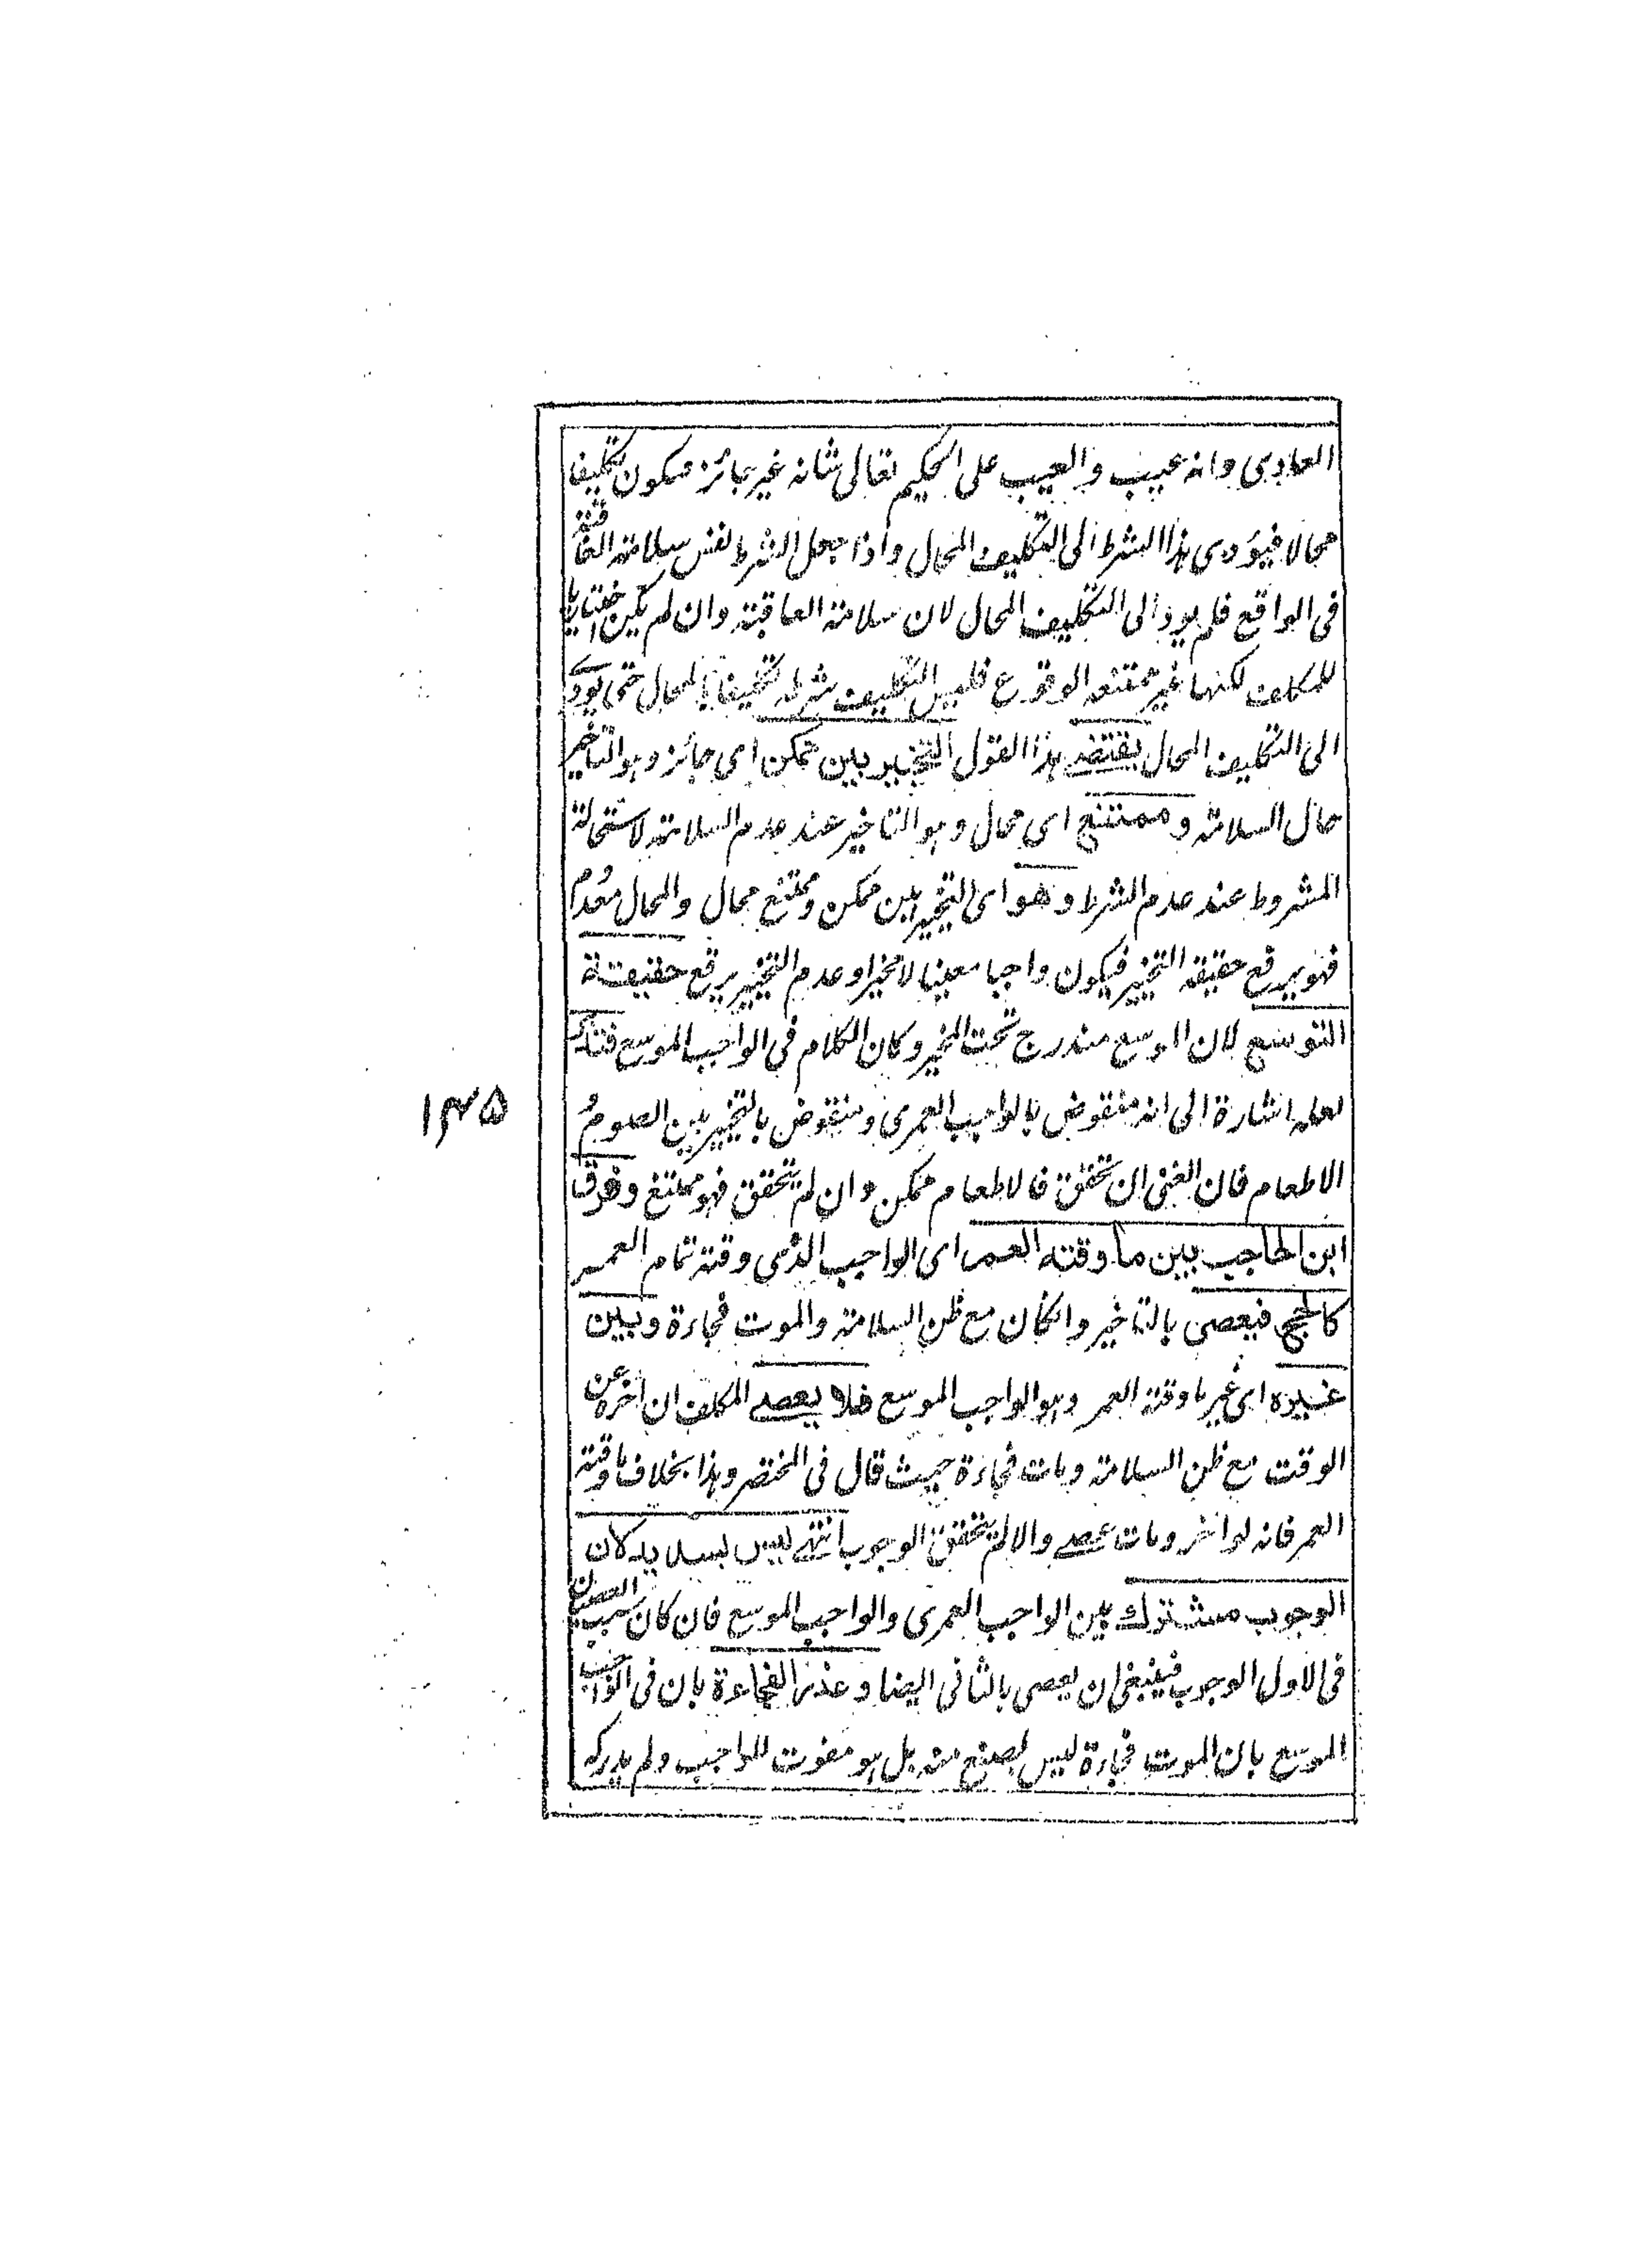 العادي وانه عيب والعيب على الحكيم تعالى شانه غير جائز فيكون تكليفا
محالا فيؤدى هذا الشرط الى التكليف المحال واذا جعل الشرط نفس سلامة العاقبة
فى الواقع فلم يود الى التكليف المحال لان سلامة العاقبة وان لم يكن اختياريا
للمكلف لكنها غير ممتنعه الوقوع فليس التكليف بشرطه تكليفا بالمحال حتى يودى
الى التكليف المحال يقتضى هذا القول التخيير بين ممكن اى جائز وهو التاخير
حال السلامة و ممتنع اى محال وهو التاخير عند عدم السلامة لاستحالة
المشروط عند عدم الشرط وهو اى التخيير بين ممكن وممتنع محال والمحال معدم
فهو يرفع حقيقة التخيير فيكون واجبا معينا لا مخيرا وعدم التخيير يرفع حقيقة
التوسع لان الموسع مندرج تحت المخير وكان الكلام فى الواجب الموسع فتامل
لعله اشارة الى انه منقوض بالواجب العمرى ومنقوض بالتخيير بين الصوم و
الاطعام فان الغنى ان تحقق فالاطعام ممكن وان لم يتحقق فهو ممتنع وفرق
ابن الحاجب بين ما وقته العمر اى الواجب الذى وقته تمام العمر
كالحج فيعصى بالتاخير وانكان مع ظن السلامة والموت فجاءة وبين
غيره اى غير ما وقته العمر وهو الواجب الموسع فلا يعصى المكلف ان اخره عن
الوقت مع ظن السلامة ومات فجاءة حيث قال فى المختصر وهذا بخلاف ما وقته
العمر فانه لو اخر ومات عصى والا لم يتحقق الوجوب انتهى ليس بسديد لان
الوجوب مشترك بين الواجب العمرى والواجب الموسع فان كان سبب العصيان
فى الاول الوجوب فينبغى ان يعصى بالثانى ايضا وعذر الفجاءة بان فى الواجب
الموسع بان الموت فجاءة ليس بصنع منه بل هو مفوت للواجب ولم يدركه
۱۳۵